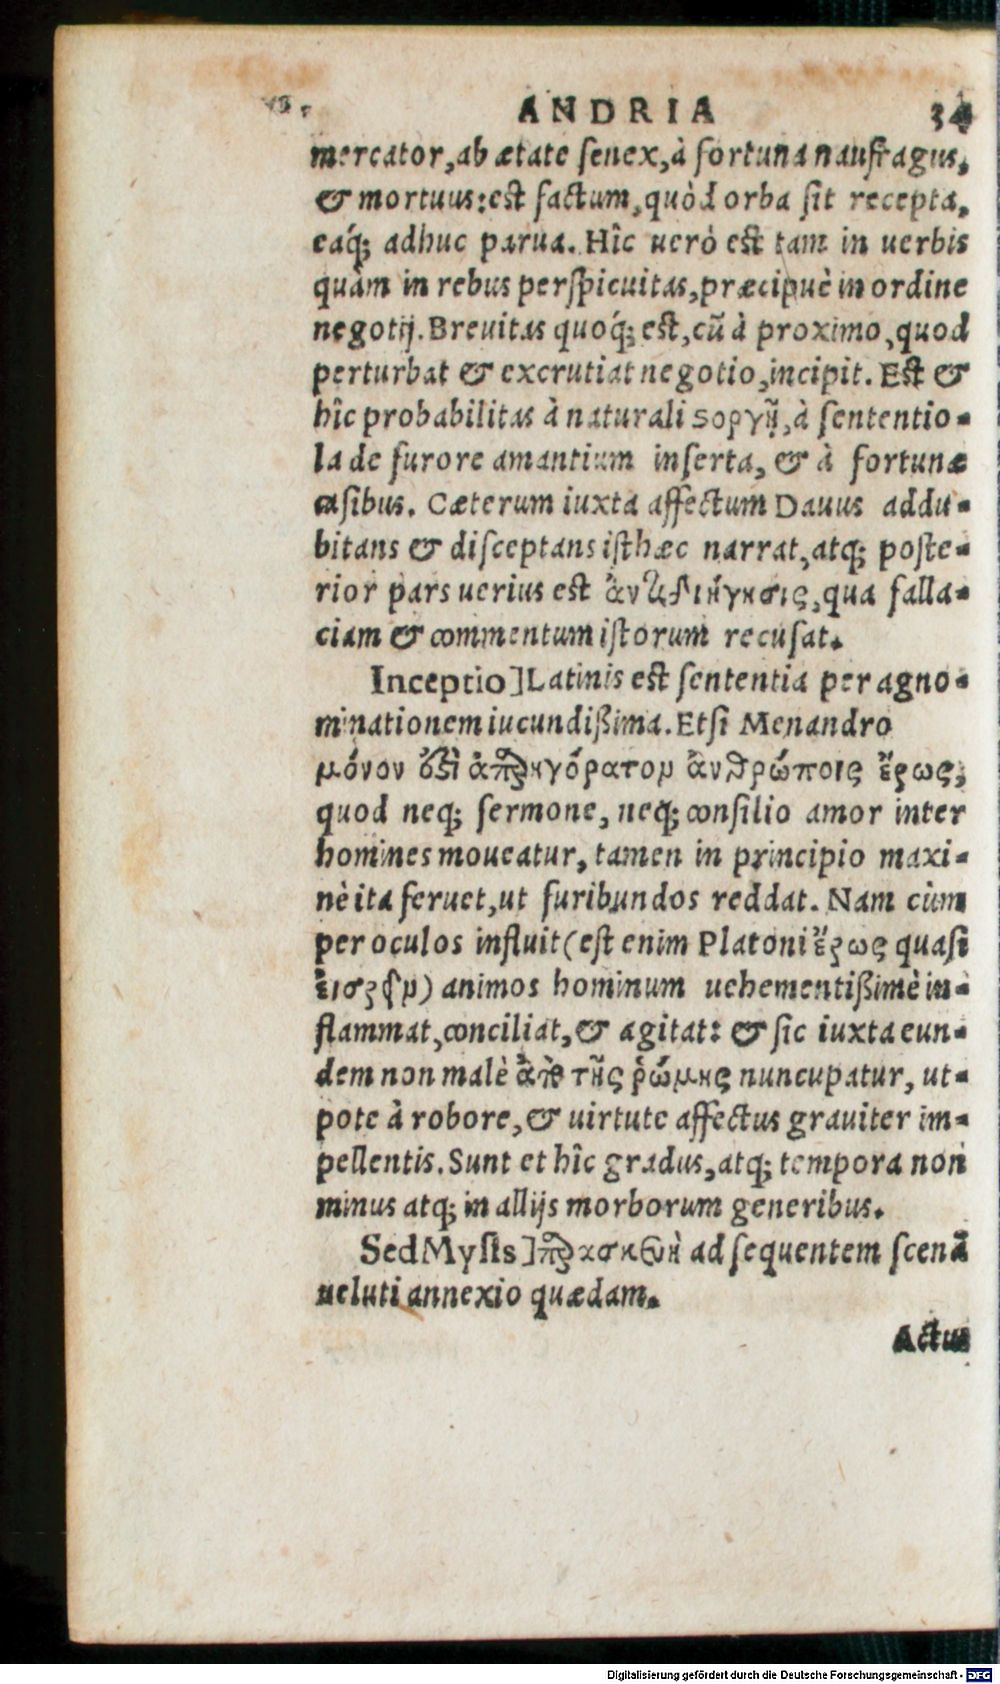 ANDRIA 34
mercator, ab ætate senex, à fortuna naufragus,
& mortuus: est factum, quòd orba sit recepta,
eaq́; adhuc parua. Hîc uerò est tam in uerbis
quàm in rebus perspicuitas, præcipuè in ordine
negotij. Breuitas quoq́; est, cũ à proximo, quod
perturbat & excrutiat negotio, incipit. Est &
hîc probabilitas à naturali ϛοργῇ, à sententio-
la de furore amantium inserta, & à fortunæ
casibus. Cæterum iuxta affectum Dauus addu-
bitans & disceptans isthæc narrat, atq; poste-
rior pars uerius est ἀντιδιήγησις, qua falla-
ciam & commentum istorum recusat.
Inceptio] Latinis est sententia per agno-
minationem iucundißima. Etsi Menandro
μόνον ἀπαρηγόρατομ ἀνθρώποις ἔρως,
quod neq; sermone, neq; consilio amor inter
homines moueatur, tamen in principio maxi-
nè ita feruet, ut furibundos reddat. Nam cùm
per oculos influit (est enim Platoni ἔρως quasi
) animos hominum uehementißimè in-
flammat, conciliat, & agitat: & sic iuxta eun-
dem non malè ἀπὸ τῆς ῥώμης nuncupatur, ut-
pote à robore, & uirtute affectus grauiter im-
pellentis. Sunt et hîc gradus, atq; tempora non
minus atq; in allijs morborum generibus.
Sed Mysis] παρασκευὴ ad sequentem scenã
ueluti annexio quædam.
Actus
Digitalisierung gefördert durch die Deutsche Forschungsgemeinschaft - DFG